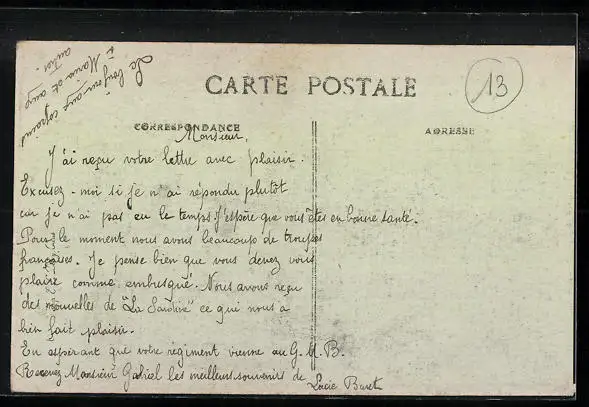 Le bonjour aux copains
à Maria et aux
autres.
CARTE POSTALE
13
CORRESPONDANCE
ADRESSE
Monsieur,
J'ai reçu votre lettre avec plaisir.
Excusez-moi si je n'ai répondu plutôt
car je n'ai pas eu le temps J'espère que vous êtes en bonne santé.
Pour le moment nous avons beaucoup de troupes
françaises. Je pense bien que vous devez vous
plaire comme embusqué. Nous avons reçu
des nouvelles de "La" ce qui nous a
bien fait plaisir.
En espérant que votre régiment vienne au G.M.B.
Recevez Monsieur Gabriel les meilleurs souvenirs de Lucie